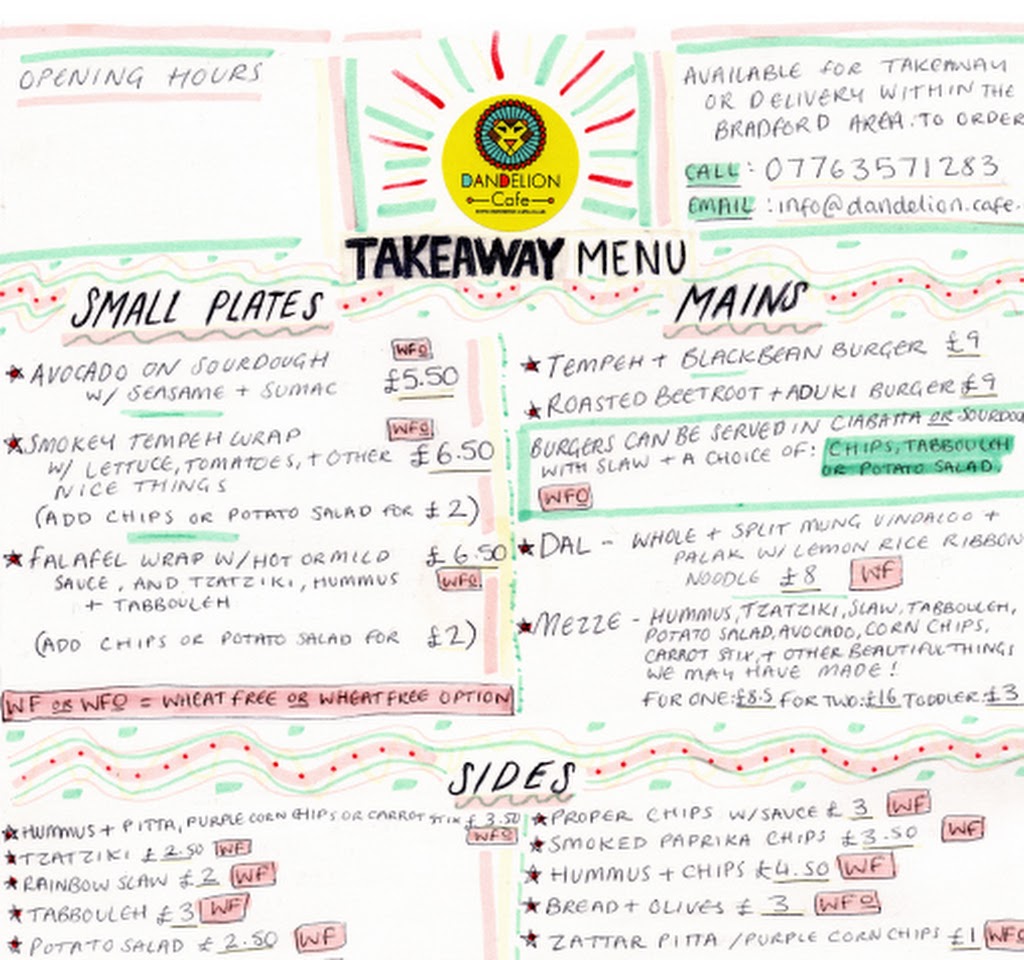 OPENING HOURS
AVAILABLE FOR TAKEAWAY
OR DELIVERY WITHIN THE
BRADFORD AREA. TO ORDER
CALL : 07763571283
EMAIL : info@dandelion.cafe.
DANDELION
Cafe
TAKEAWAY MENU
SMALL PLATES
★ AVOCADO ON SOURDOUGH WFO
W/ SEASAME + SUMAC £5.50
★ SMOKEY TEMPEH WRAP WFO
W/ LETTUCE, TOMATOES, + OTHER £6.50
NICE THINGS
(ADD CHIPS OR POTATO SALAD FOR £2)
★ FALAFEL WRAP W/HOT OR MILD £6.50
SAUCE, AND TZATZIKI, HUMMUS WFO
+ TABBOULEH
(ADD CHIPS OR POTATO SALAD FOR £2)
WF OR WFO = WHEAT FREE OR WHEAT FREE OPTION
MAINS
★ TEMPEH + BLACKBEAN BURGER £9
★ ROASTED BEETROOT + ADUKI BURGER £9
BURGERS CAN BE SERVED IN CIABATTA OR SOURDOU
WITH SLAW + A CHOICE OF: CHIPS, TABBOULEH
OR POTATO SALAD.
WFO
★ DAL - WHOLE + SPLIT MUNG VINDALOO +
PALAK W/ LEMON RICE RIBBON
NOODLE £8 WF
★ MEZZE - HUMMUS, TZATZIKI, SLAW, TABBOULEH,
POTATO SALAD, AVOCADO, CORN CHIPS,
CARROT STIX, + OTHER BEAUTIFUL THINGS
WE MAY HAVE MADE!
FOR ONE: £8.5 FOR TWO: £16 TODDLER: £3
SIDES
★ HUMMUS + PITTA, PURPLE CORN CHIPS OR CARROT STIX £3.50
WFO
★ TZATZIKI £2.50 WF
★ RAINBOW SLAW £2 WF
★ TABBOULEH £3 WF
★ POTATO SALAD £2.50 WF
★ PROPER CHIPS W/SAUCE £3 WF
★ SMOKED PAPRIKA CHIPS £3.50 WF
★ HUMMUS + CHIPS £4.50 WF
★ BREAD + OLIVES £3 WFO
★ ZATTAR PITTA / PURPLE CORN CHIPS £1 WFO